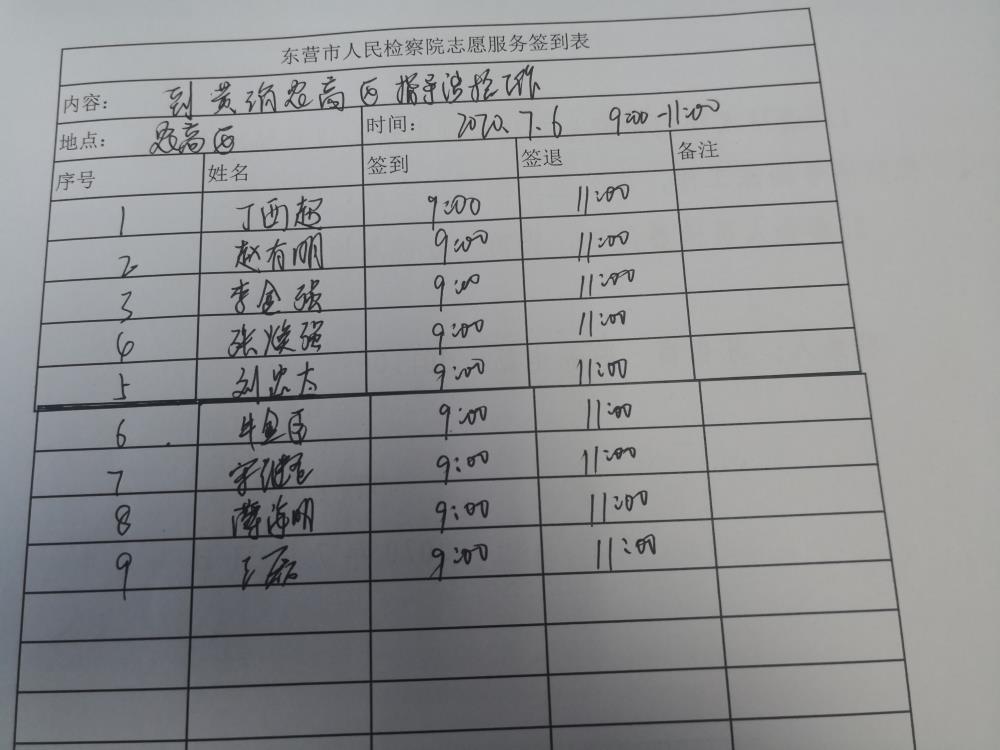 东营市人民检察院志愿服务签到表
内容： 到黄河农高区指导防控工作
地点： 农高区 时间： 2020.7.6 9:00-11:00
序号 姓名 签到 签退 备注
1 丁西超 9:00 11:00
2 赵有明 9:00 11:00
3 李金强 9:00 11:00
4 张焕强 9:00 11:00
5 刘忠太 9:00 11:00
6 牛金 9:00 11:00
7 宋继 9:00 11:00
8 薄海明 9:00 11:00
9 王磊 9:00 11:00